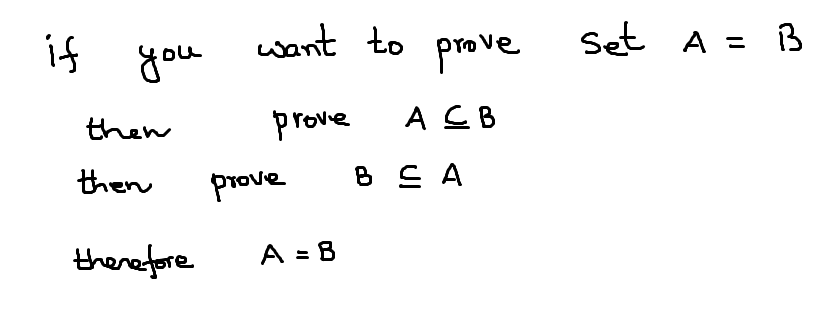 if you want to prove set A = B
then prove A ⊆ B
then prove B ⊆ A
therefore A = B